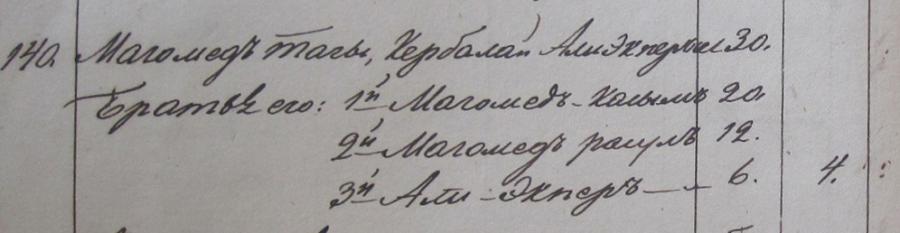 140. Магомедъ Тагы, Кербалай Али Экперъ 30.
Братья его: 1й Магомедъ-Касымъ 20.
2й Магомедъ расулъ 12.
3й Али-Экперъ — 6. 4.